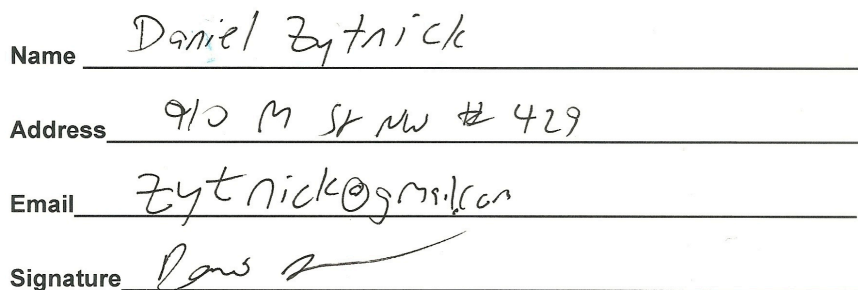 Name Daniel Zytnick
Address 910 M St NW # 429
Email zytnick@gmail.com
Signature